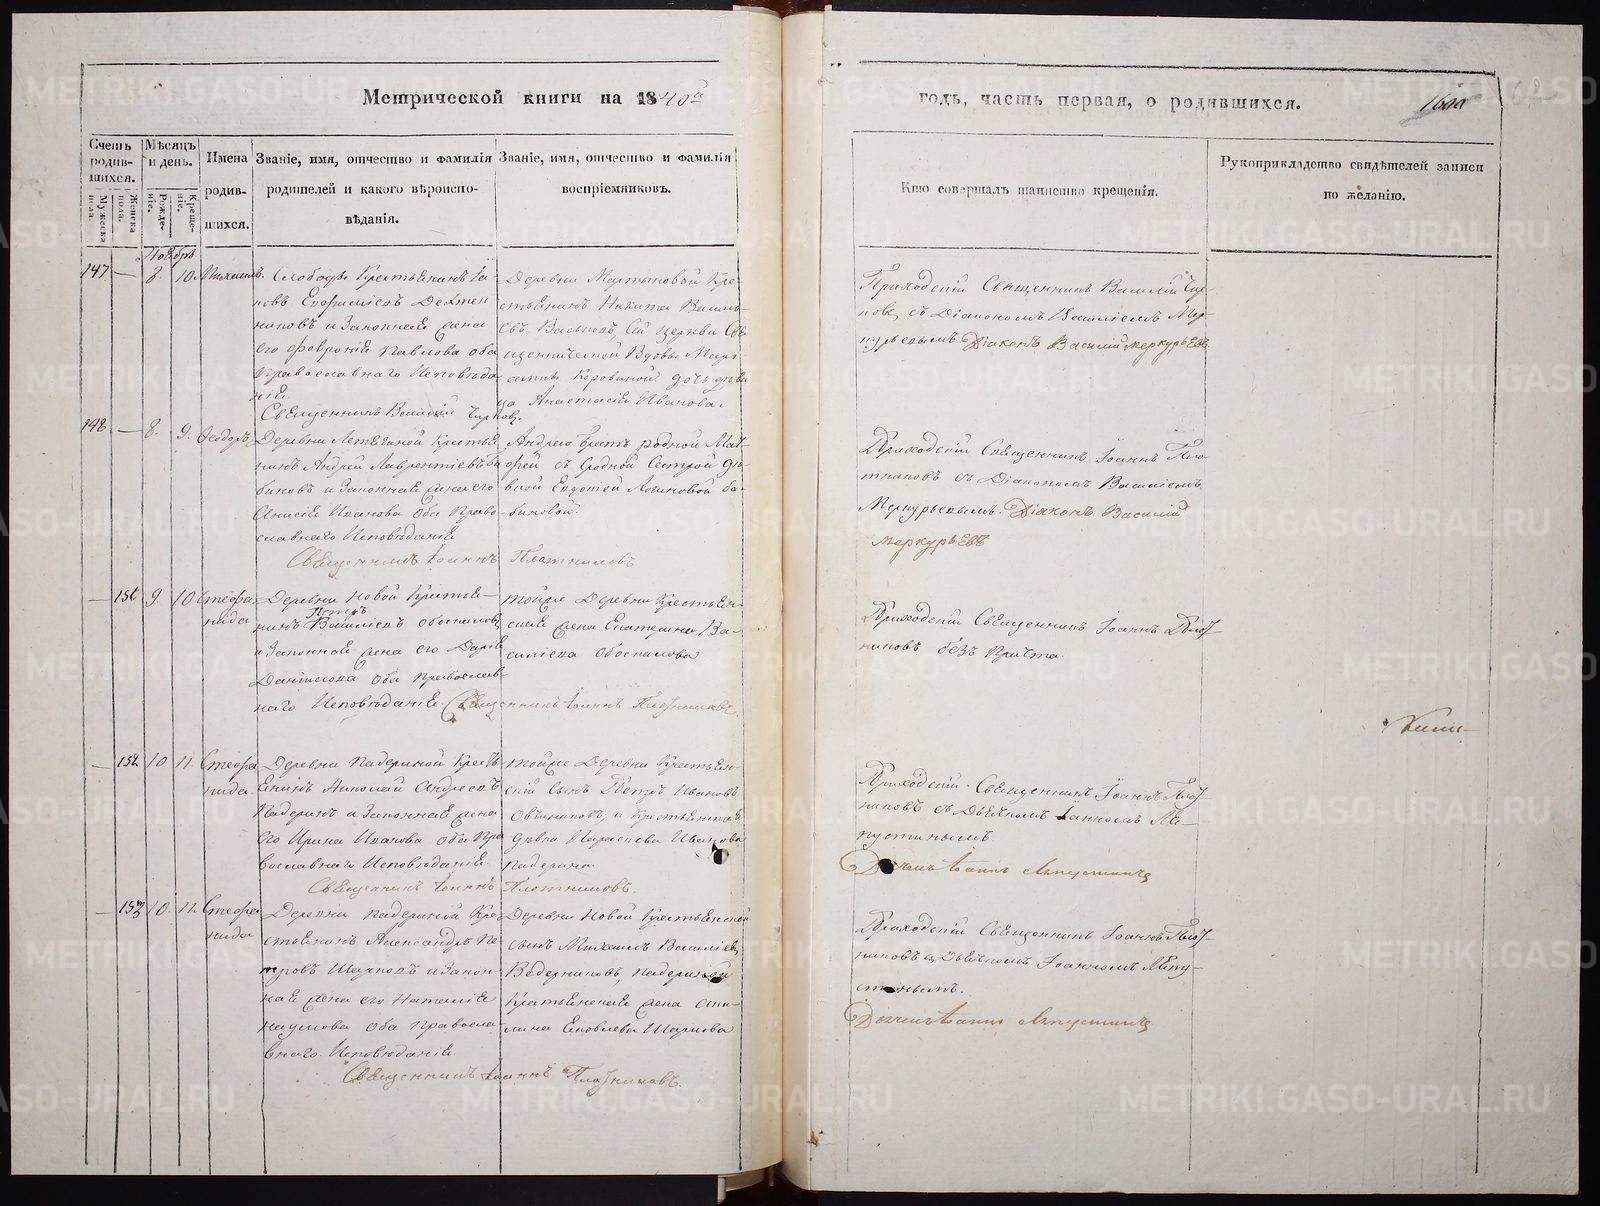 Метрической книги на 1840й
годъ, часть первая, о родившихся.
160
62
Счетъ родившихся.
Мужеска пола.
Женска пола.
Мѣсяцъ и день.
Рожденіе.
Крещеніе.
Имена родившихся.
Званіе, имя, отчество и фамилія
родителей и какого вѣроиспо-
вѣданія.
Званіе, имя, отчество и фамилія
воспріемниковъ.
Кто совершалъ таинство крещенія.
Рукоприкладство свидѣтелей записи
по желанію.
Ноябрь
147. — 8. 10. Михаилъ.
Слободы Крестьянинъ
Евфиміевъ
никовъ и Законная жена
его Февронія Павлова оба
Православнаго Исповѣда-
нія
Священникъ Василій
Деревни Мартыновой Кре-
стьянинъ Никита Василь-
евъ Васьковъ, Сей церкви Свя-
щеннической Вдовы
Коровиной дочь дѣви-
ца Анастасія Иванова.
Приходскій Священникъ Василій
съ Діакономъ Василіемъ Мер-
курьевымъ Діаконъ Василий Меркурьевъ
148. — 8. 9. Ѳеодоръ
Деревни Крестья-
нинъ Андрей Лаврентіевъ Ба-
биновъ и Законная жена его
Анисія Иванова Оба Право-
славнаго Исповѣданія
Священникъ Іоаннъ Плотниковъ
Андрею братъ родной Мат-
фей съ Родной Сестрой дѣ-
вкой Евдокіей Логиновой Ба-
биновой.
Приходскій Священникъ Іоаннъ Пло-
тниковъ съ Діакономъ Василіемъ
Меркурьевымъ. Діаконъ Василий
Меркурьевъ
— 151 9. 10 Стефа-
нида
Деревни Новой Крестья-
Петръ
нинъ Василіевъ Обоскаловъ
и Законная жена его Дарія
Даніилова Оба Православ-
наго Исповѣданія Священникъ Іоаннъ Плотниковъ
тойже Деревни Крестьян-
ская жена Екатерина Ва-
силіева Обоскалова
Приходскій Священникъ Іоаннъ Плот-
никовъ безъ Причта.
— 152 10 11. Стефа-
нида
Деревни Падериной Кресть-
янинъ Николай Андреевъ
Падеринъ и Законная жена
его Ирина Иванова оба Пра-
вославнаго Исповѣданія.
Священникъ Іоаннъ Плотниковъ.
тойже Деревни Крестьян-
скій сынъ Петръ Ивановъ
Овчинниковъ, и Крестьянская
дѣвка Параскева Иванова
Падерина.
Приходскій Священникъ Іоаннъ Плот-
никовъ съ Дьячкомъ Іоанномъ Ле-
пустинымъ
Дьячекъ Іоаннъ
— 153 10. 11. Стефа-
нида
Деревни Падериной Кре-
стьянинъ Александръ Пе-
тровъ Шарповъ и Закон-
ная жена его Наталія
Наумова Оба Правосла-
внаго Исповѣданія.
Священникъ Іоаннъ Плотниковъ.
Деревни Новой Крестьянской
сынъ Михаилъ Василіевъ
Ведерниковъ, Падериной
Крестьянская жена
Яковлева Шарпова
Приходскій Священникъ Іоаннъ Плот-
никовъ съ Дьячкомъ Іоанномъ Лепу-
стинымъ.
Дьячекъ Іоаннъ
METRIKI.GASO-URAL.RU